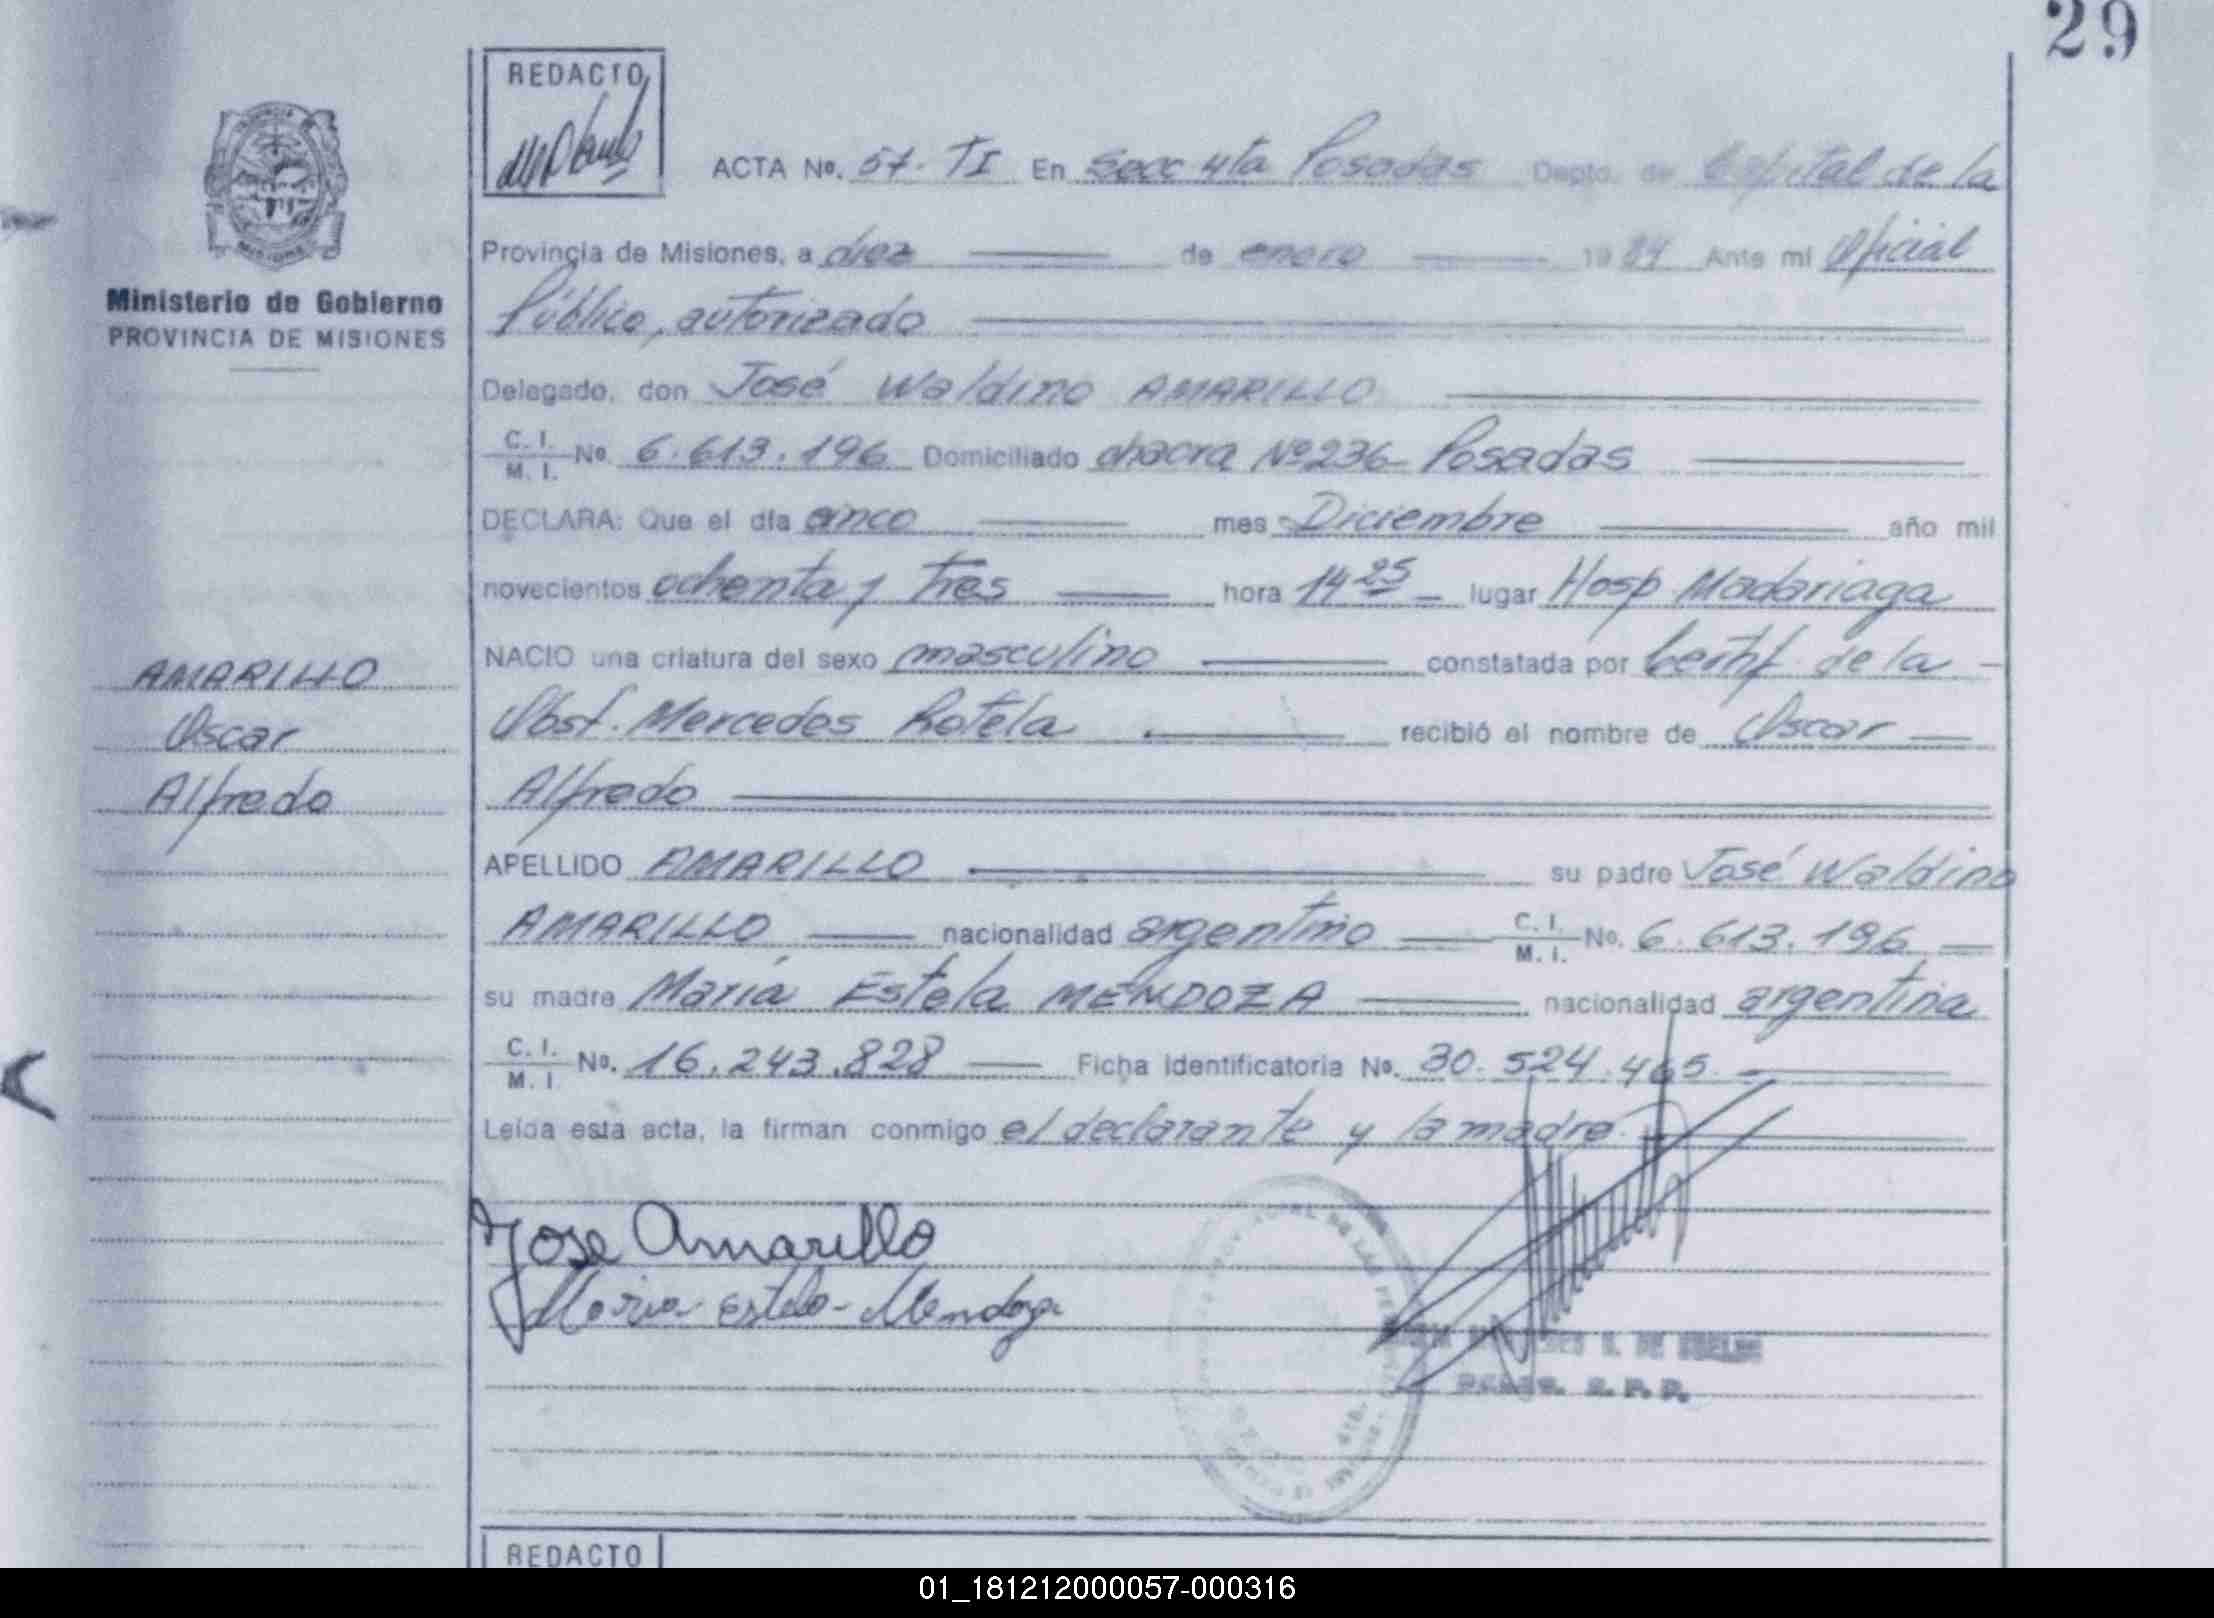 29
REDACTO
ACTA No. 57. TI En Secc 4ta Posadas Depto. de Capital de la
Provincia de Misiones, a diez de enero 1984 Ante mi Oficial
Ministerio de Gobierno
PROVINCIA DE MISIONES
Público, autorizado
Delegado, don José Waldino AMARILLO
C. I.
M. I. No. 6.613.196 Domiciliado chacra Nº 236 Posadas
DECLARA: Que el día cinco mes Diciembre año mil
novecientos ochenta y tres hora 14 25 lugar Hosp Madariaga
NACIO una criatura del sexo masculino constatada por Certif. de la
AMARILLO
Oscar
Alfredo
Obst. Mercedes Rotela recibió el nombre de Oscar
Alfredo
APELLIDO AMARILLO su padre José Waldino
AMARILLO nacionalidad argentino C. I.
M. I. No. 6.613.196
su madre María Estela MENDOZA nacionalidad argentina
C. I.
M. I. No. 16.243.828 Ficha Identificatoria No. 30.524.465.
Leída esta acta, la firman conmigo el declarante y la madre.
Jose Amarillo
Maria Estela Mendoza
REDACTO
01_181212000057-000316